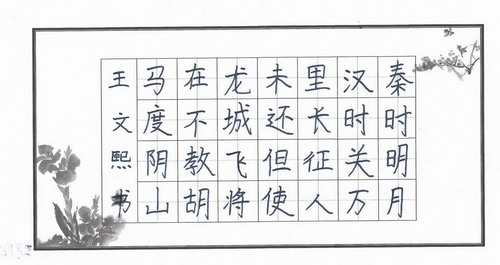 秦时明月
汉时关万
里长征人
未还但使
龙城飞将
在不教胡
马度阴山
王文熙书